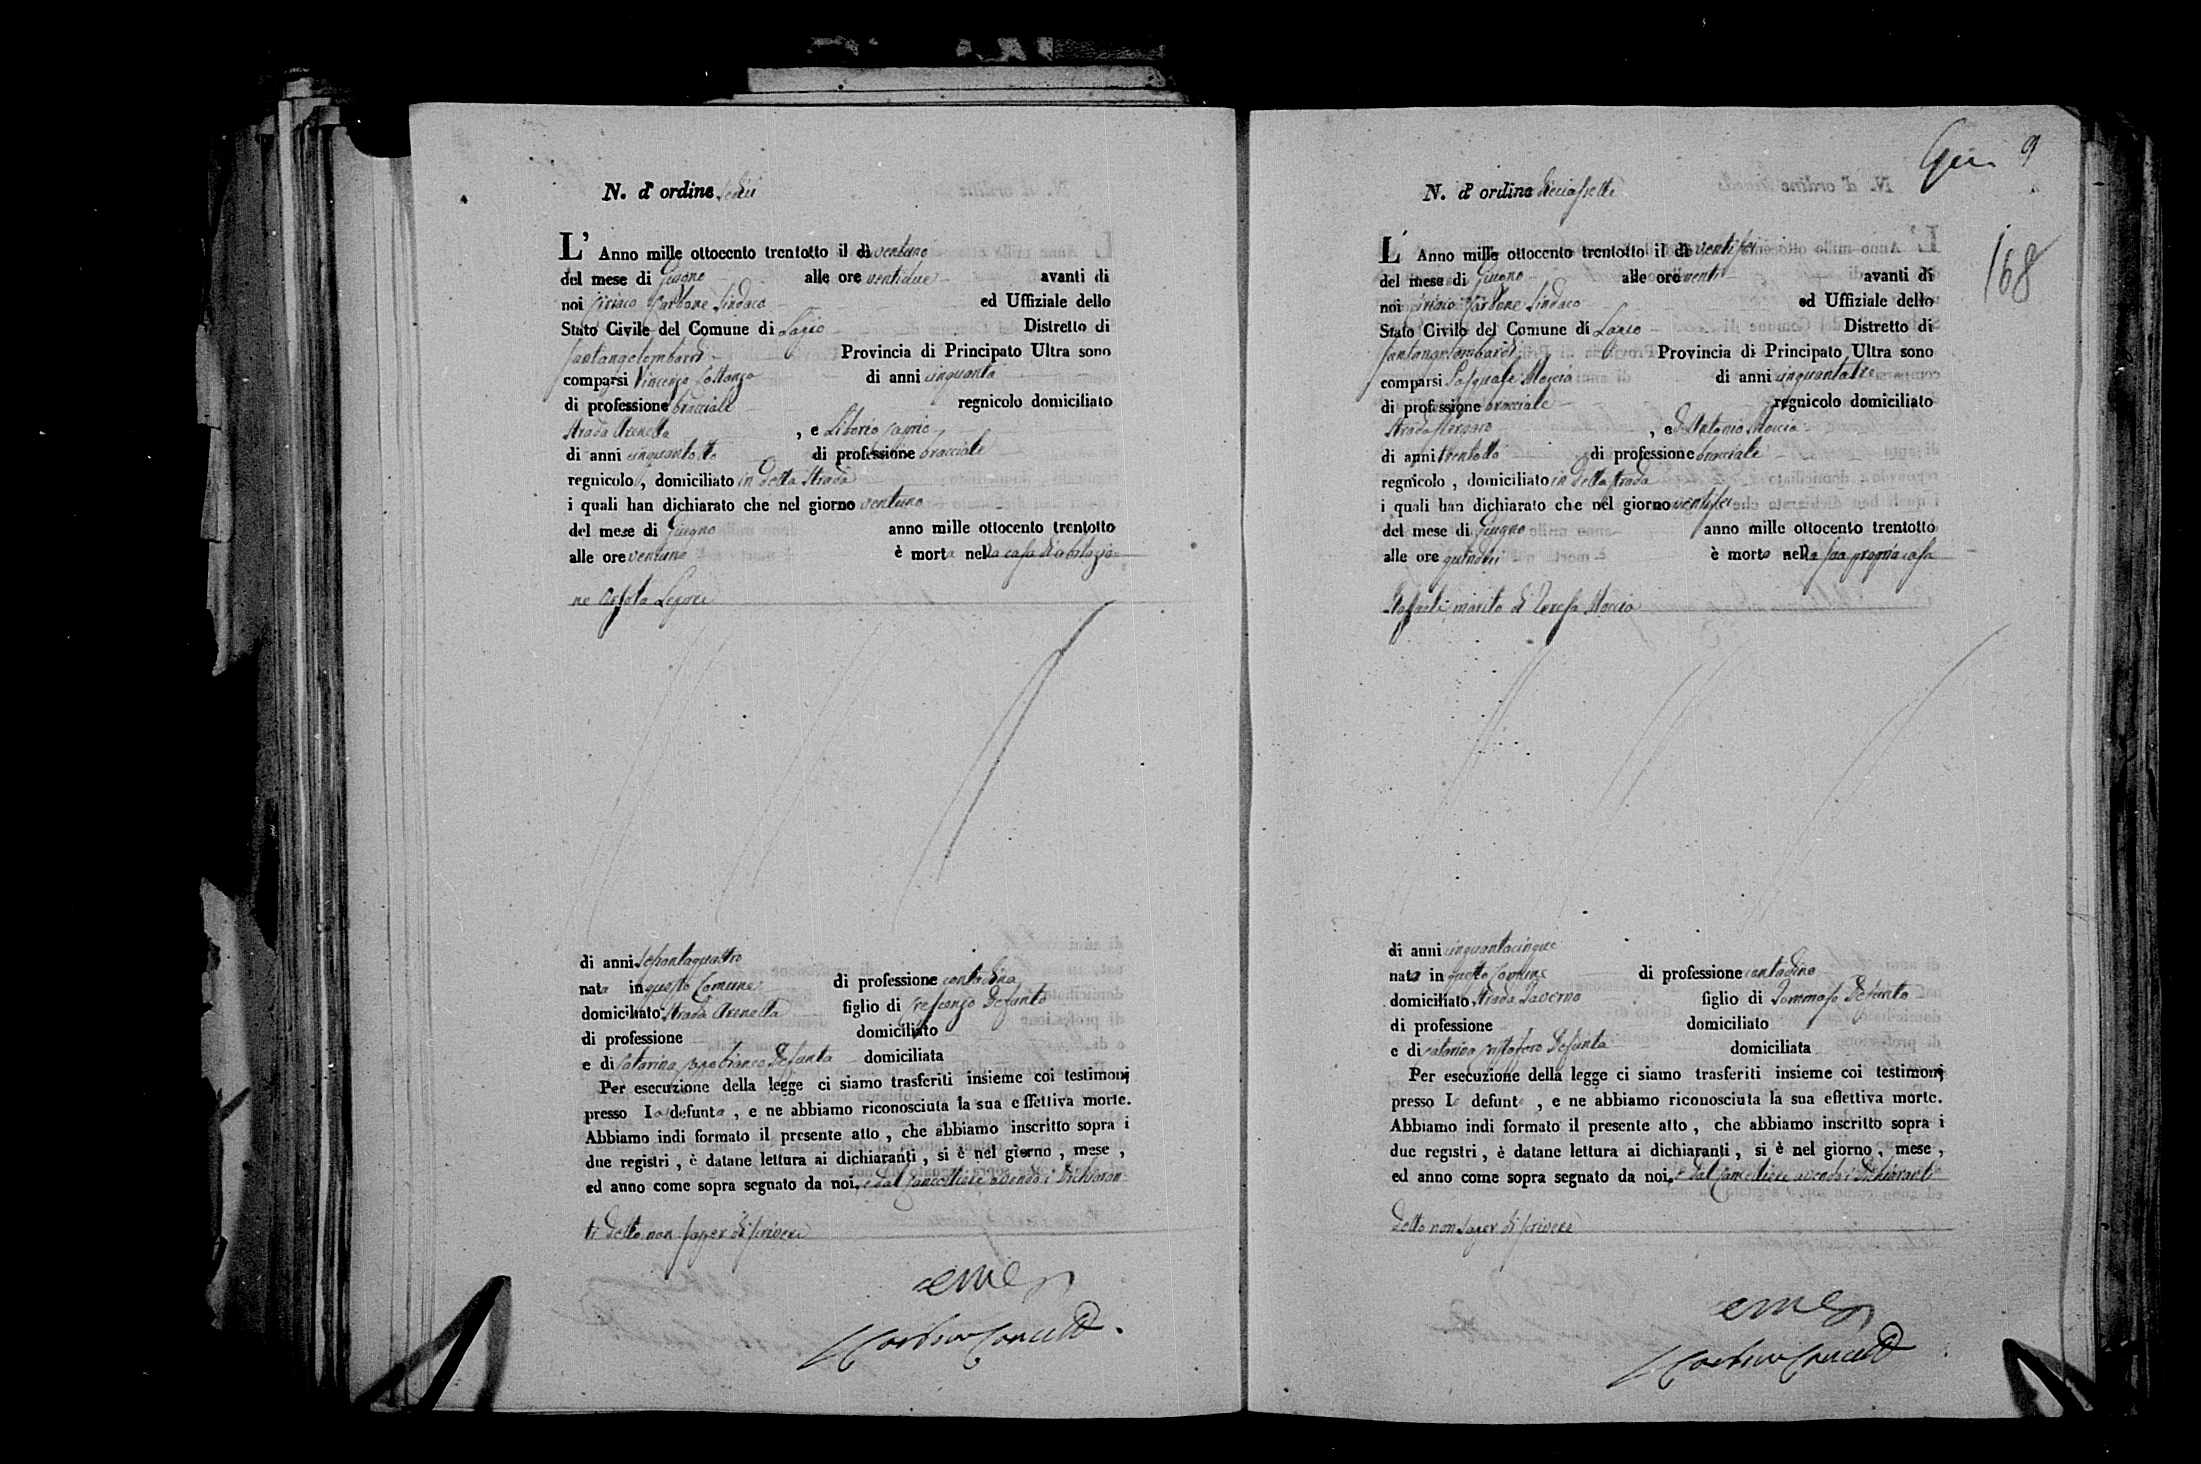 N. d' ordine sedici
L' Anno mille ottocento trentotto il dì ventuno
del mese di Giugno alle ore ventidue avanti di
noi Ciriaco Carbone Sindaco ed Uffiziale dello
Stato Civile del Comune di Distretto di
Santangelombardi Provincia di Principato Ultra sono
comparsi Vincenzo di anni cinquanta
di professione bracciale regnicolo domiciliato
Strada Arenella , e Liborio Caprio
di anni cinquantotto di professione bracciale
regnicolo , domiciliato in detta Strada
i quali han dichiarato che nel giorno ventuno
del mese di Giugno anno mille ottocento trentotto
alle ore ventuno è morta nella casa di abitazio
ne Orsola
di anni settantaquattro
nata in questo Comune di professione contadina
domiciliato Strada Arenella figlio di Crescenzo defunto
di professione domiciliato
e di Catarina Capobianco defunta domiciliata
Per esecuzione della legge ci siamo trasferiti insieme coi testimonj
presso la defunta , e ne abbiamo riconosciuta la sua effettiva morte.
Abbiamo indi formato il presente atto , che abbiamo inscritto sopra i
due registri , è datane lettura ai dichiaranti , si è nel giorno , mese ,
ed anno come sopra segnato da noi, e dal Cancelliere avendo i dichiaran
ti detto non saper di scrivere
Gen 9
168
N. d' ordine diciassette
L' Anno mille ottocento trentotto il dì ventisei
del mese di Giugno alle ore venti avanti di
noi Ciriaco Carbone Sindaco ed Uffiziale dello
Stato Civile del Comune di Distretto di
Santangelombardi Provincia di Principato Ultra sono
comparsi Pasquale Moccia di anni cinquantatre
di professione bracciale regnicolo domiciliato
Strada , ed Antonio Moccia
di anni trentotto di professione bracciale
regnicolo , domiciliato in detta strada
i quali han dichiarato che nel giorno ventisei
del mese di Giugno anno mille ottocento trentotto
alle ore quindici è morto nella sua propria casa
marito di Teresa Moccia
di anni cinquantacinque
nato in questo Comune di professione contadino
domiciliato Strada Taverna figlio di Tommaso defunto
di professione domiciliato
e di Catarina Cristofaro defunta domiciliata
Per esecuzione della legge ci siamo trasferiti insieme coi testimonj
presso l defunt , e ne abbiamo riconosciuta la sua effettiva morte.
Abbiamo indi formato il presente atto , che abbiamo inscritto sopra i
due registri , è datane lettura ai dichiaranti , si è nel giorno , mese ,
ed anno come sopra segnato da noi, e dal Cancelliere avendo i dichiaranti
detto non saper di scrivere